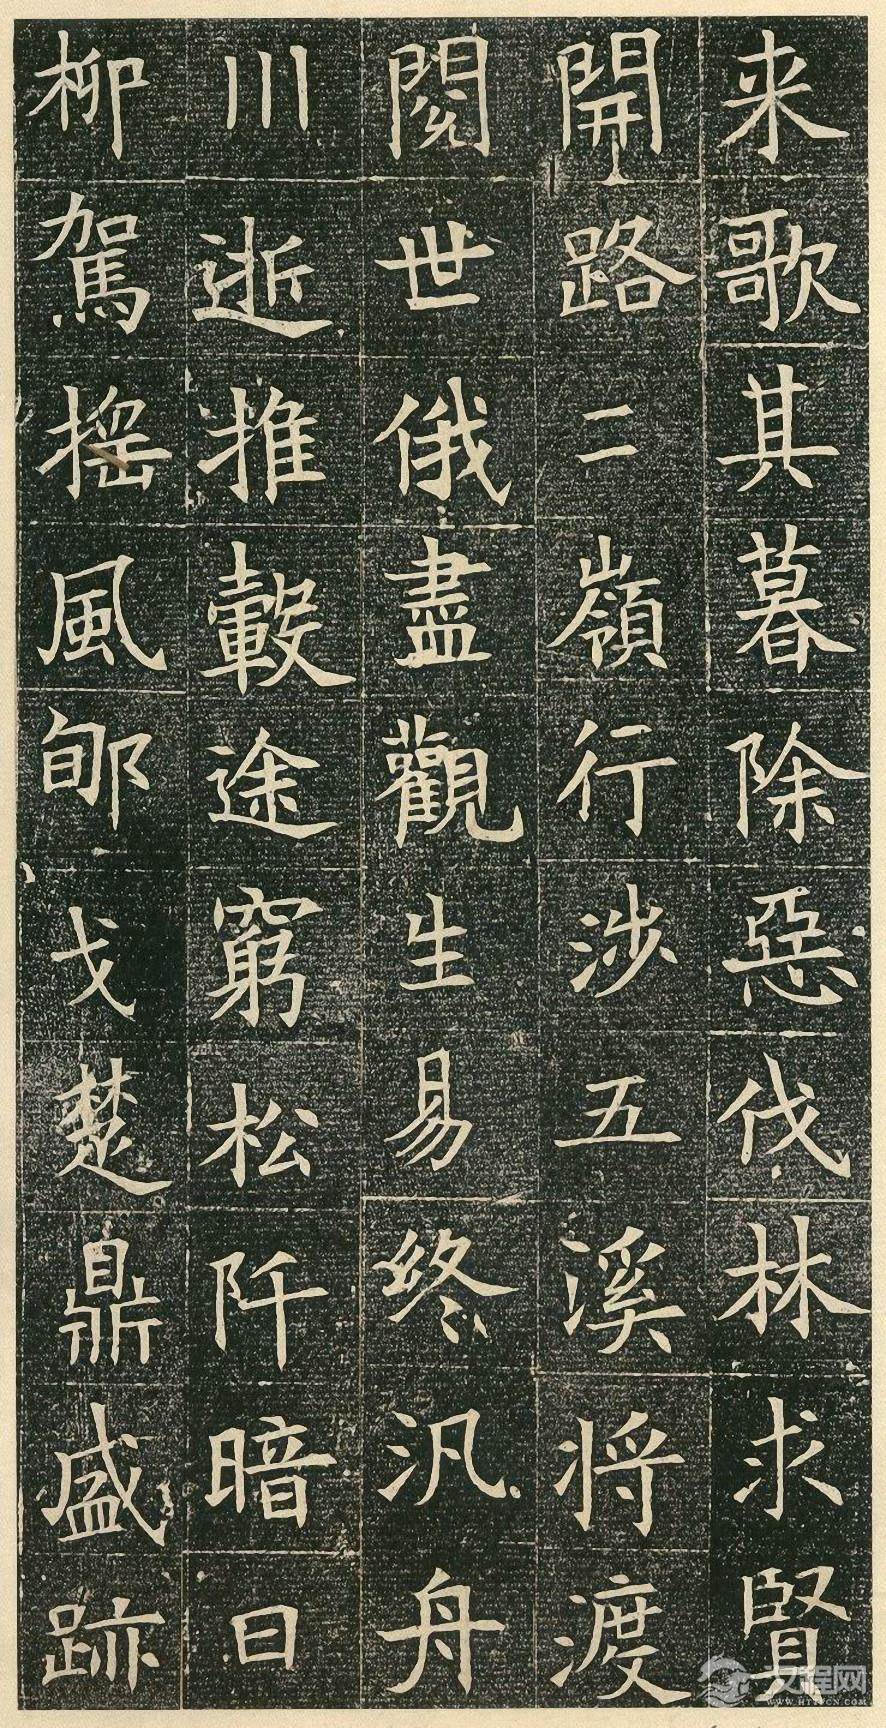 来歌其暮除惡伐林求賢
開路二嶺行涉五溪将渡
閱世俄盡觀生易終汎舟
川逝推轂途窮松阡暗日
柳駕摇風郇戈楚鼎盛跡
汉程网
WWW.HTTPCN.COM